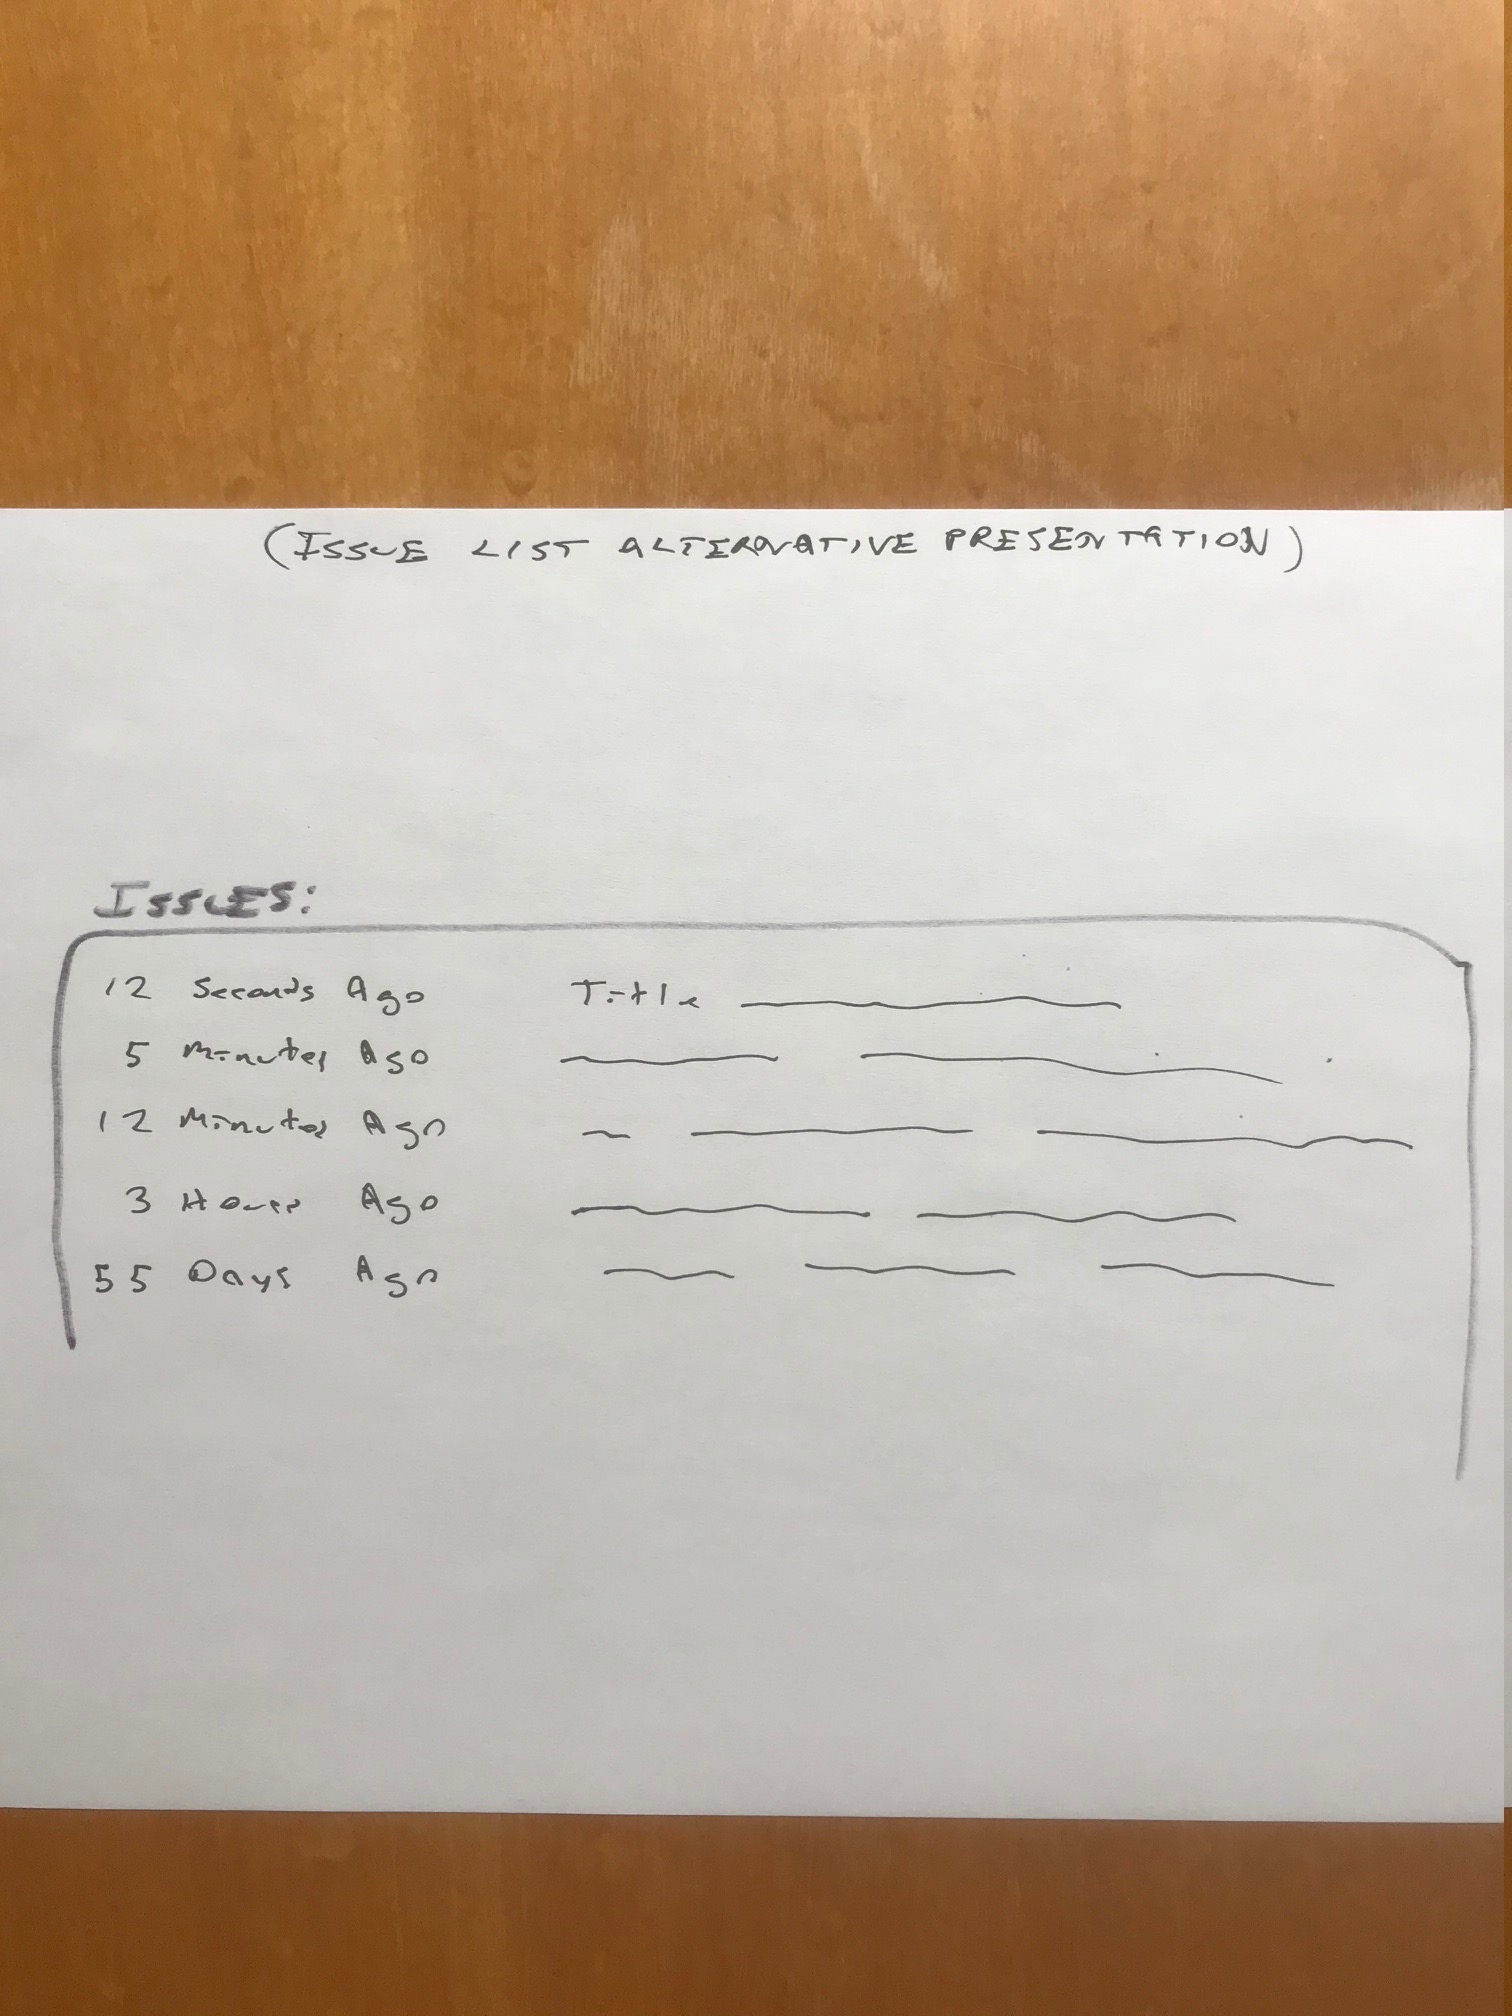 (ISSUE LIST ALTERNATIVE PRESENTATION)
ISSUES:
12 Seconds Ago Title
5 Minutes Ago
12 Minutes Ago
3 Hours Ago
55 Days Ago